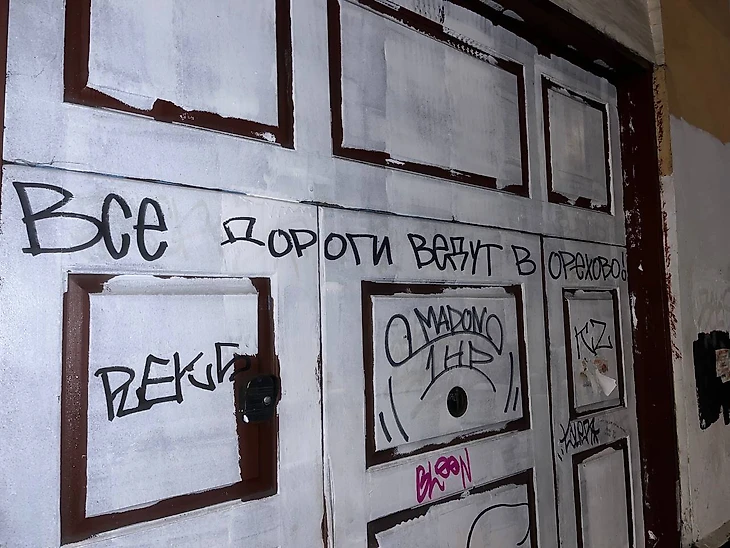 Все дороги ведут в Орехово!
REKS
MADONO
1HP
KZ
BLOON